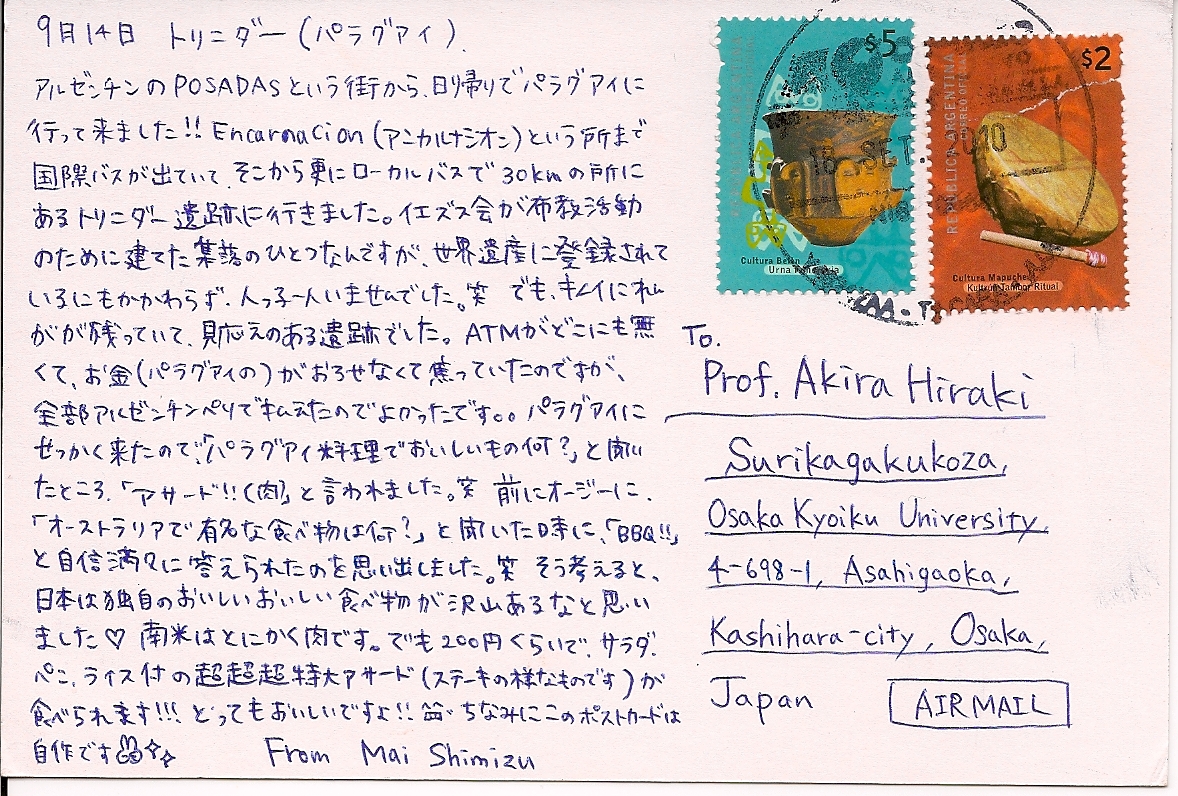 9月14日 トリニダー(パラグアイ).
アルゼンチンのPOSADASという街から、日帰りでパラグアイに
行って来ました!! Encarnacion(アンカルナシオン)という所まで
国際バスが出ていて、そこから更にローカルバスで30kmの所に
あるトリニダー遺跡に行きました。イエズス会が布教活動
のために建てた集落のひとつなんですが、世界遺産に登録されて
いるにもかかわらず、人っ子一人いませんでした。笑 でも、キレイにれん
がが残っていて、見応えのある遺跡でした。ATMがどこにも無
くて、お金(パラグアイの)がおろせなくて焦っていたのですが、
全部アルゼンチンペソで払えたのでよかったです。。パラグアイに
せっかく来たので、「パラグアイ料理でおいしいもの何?」と聞い
たところ、「アサード!!(肉)」と言われました。笑 前にオージーに、
「オーストラリアで有名な食べ物は何?」と聞いた時に、「BBQ!!」
と自信満々に答えられたのを思い出しました。笑 そう考えると、
日本は独自のおいしいおいしい食べ物が沢山あるなと思い
ました♡ 南米はとにかく肉です。でも200円くらいで、サラダ、
パン、ライス付の超超超特大アサード(ステーキの様なものです)が
食べられます!!! とってもおいしいですよ!! ちなみにこのポストカードは
自作です
From Mai Shimizu
$5
Cultura Belén
Urna Funeraria
$2
REPUBLICA ARGENTINA
CORREO OFICIAL
Cultura Mapuche
Kultrún Tambor Ritual
SET. 2010
To.
Prof. Akira Hiraki
Surikagakukoza,
Osaka Kyoiku University,
4-698-1, Asahigaoka,
Kashihara-city, Osaka,
Japan
AIRMAIL